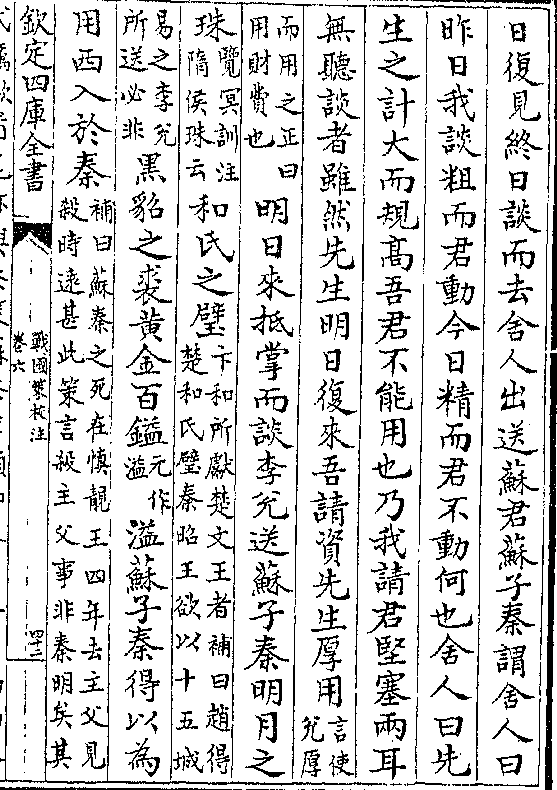 日復見終日談而去舍人出送蘇君蘇子秦謂舍人曰
昨日我談粗而君動今日精而君不動何也舍人曰先
生之計大而規髙吾君不能用也乃我請君堅塞兩耳
無聽談者雖然先生明日復來吾請資先生厚用言使兊厚
而用之正曰用財費也明日來抵掌而談李兊送蘇子秦明月之
珠覽冥訓注隋侯珠云和氏之璧卞和所獻楚文王者補曰趙得楚和氏璧秦昭王欲以十五城
易之李兊所送必非黑貂之裘黄金百鎰元作溢溢蘇子秦得以為
用西入於秦補曰蘇秦之死在慎靚王四年去主父見殺時逺甚此策言殺主父事非秦明矣其
欽定四庫全書
戰國策校注
卷六
四十二